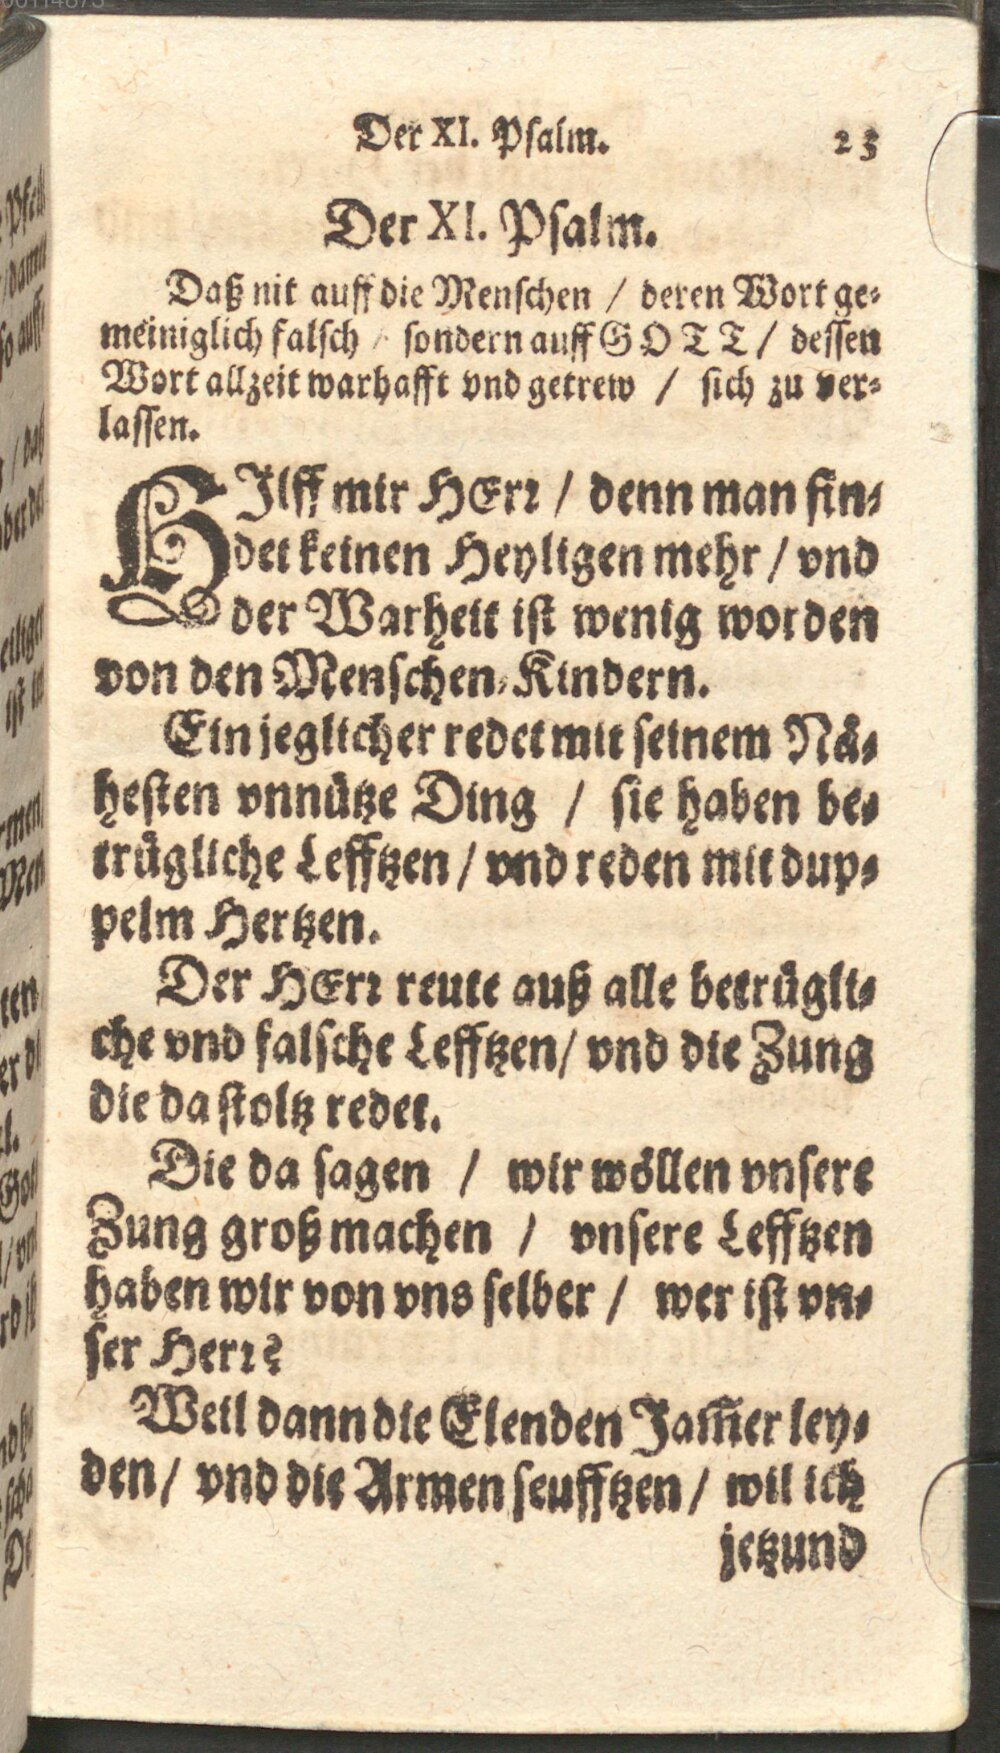 Der XI. Psalm. 23
Der XI. Psalm.
Daß nit auff die Menschen / deren Wort ge-
meiniglich falsch / sondern auff GOTT / dessen
Wort allzeit warhafft vnd getrew / sich zu ver-
lassen.
HIlff mir HErr / denn man fin-
det keinen Heyligen mehr / vnd
der Warheit ist wenig worden
von den Menschen-Kindern.
Ein jeglicher redet mit seinem Nå-
hesten vnnütze Ding / sie haben be-
trügliche Lefftzen / vnd reden mit dup-
pelm Hertzen.
Der HErr reute auß alle betrügli-
che vnd falsche Lefftzen / vnd die Zung
die da stoltz redet.
Die da sagen / wir wöllen vnsere
Zung groß machen / vnsere Lefftzen
haben wir von vns selber / wer ist vn-
ser Herr?
Weil dann die Elenden Jam̃er ley-
den / vnd die Armen seufftzen / wil ich
jetzund